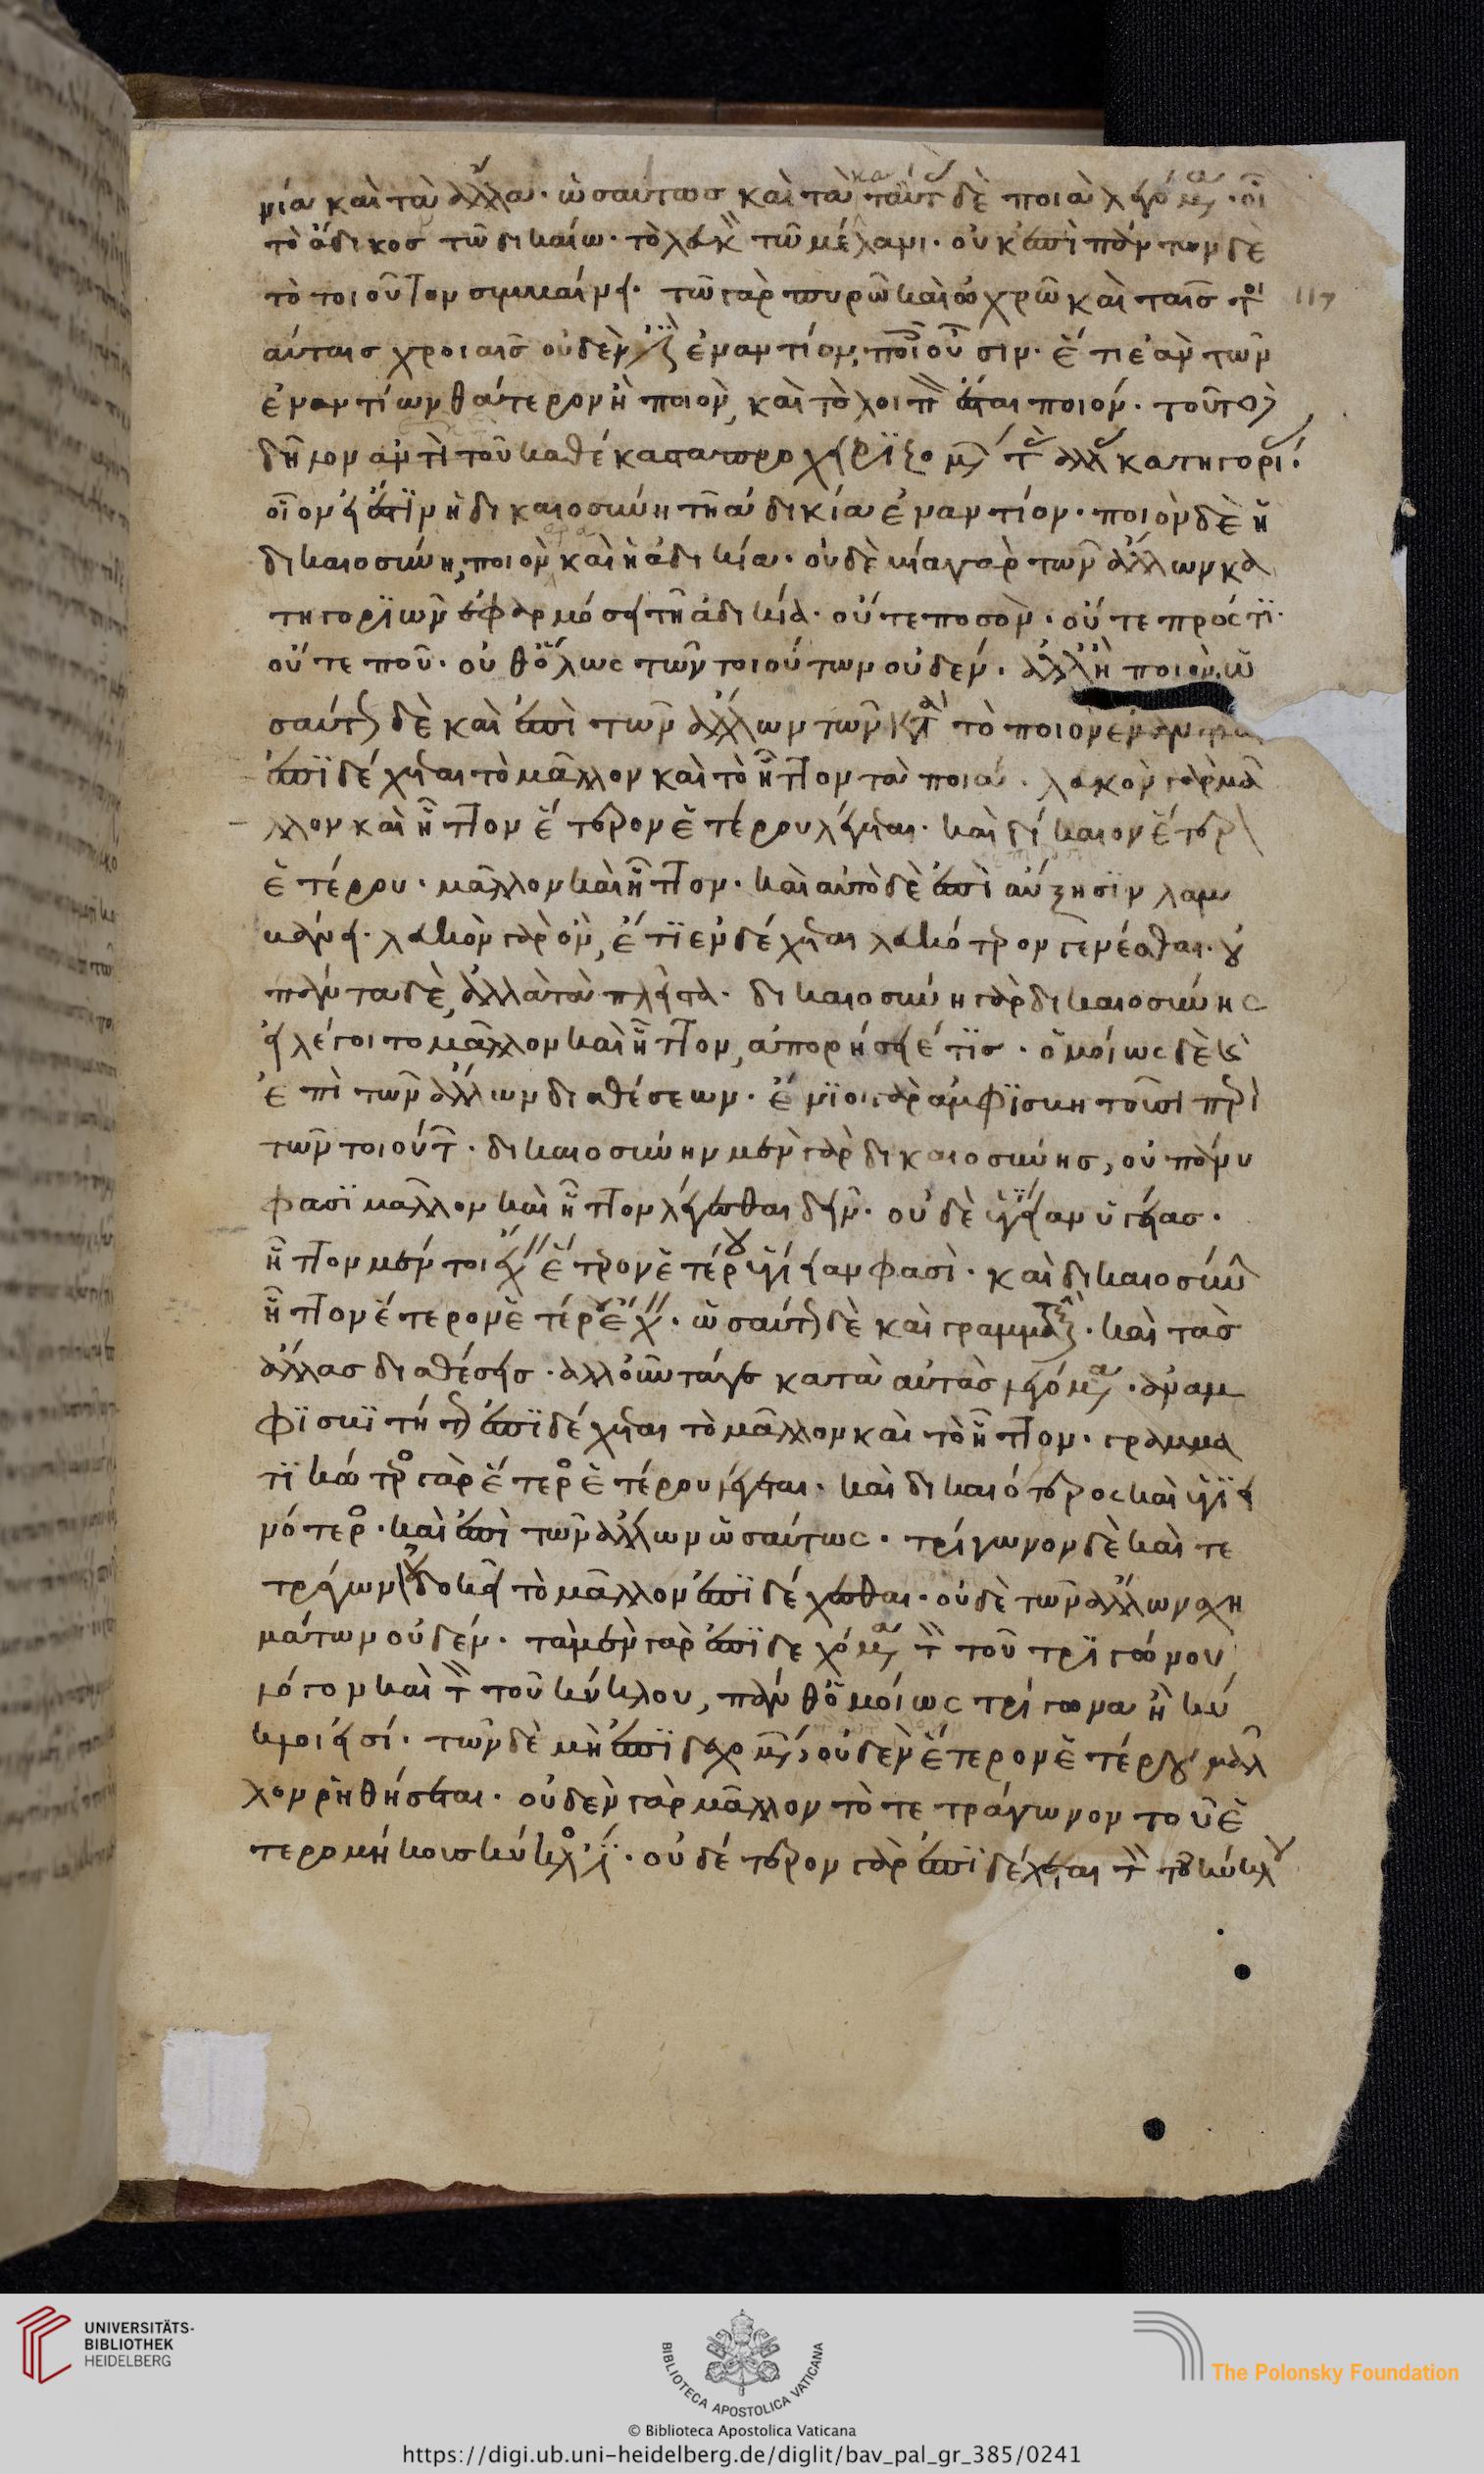 μία καὶ τὰ ἄλλα· ὡσαύτως καὶ τὰ κατ ταῦτ δὲ ποιὰ λεγόμ· οἷ
τὸ ἄδικος τῶ δικαίω· τὸ λευκ τῶ μέλανι· οὐκ ἐπὶ πάντων δὲ
τὸ τοιοῦτον συμβαίνει· τῶ γὰρ πυρῶ καὶ ὠχρῶ καὶ ταῖς τοι 117
αύταις χροιαῖς οὐδὲν ἐναντίον, ποιοῦσιν· ἔτι ἐὰν τῶν
ἐναντίων θάτερον ἦ ποιὸν, καὶ τὸ λοιπ ἔσται ποιόν· τοῦτο
δῆλον ἀντὶ τοῦ καθέκαστα προχειρϊζομ τ ἄλλ κατηγορί·
οἷον εἰ ἔστϊν ἡ δικαιοσύνη τῆ ἀδικία ἐναντίον· ποιὸν δὲ ἡ
δικαιοσύνη, ποιὸν ἄρα καὶ ἡ ἀδικία· οὐδὲ μία γὰρ τῶν ἄλλων κα
τηγορϊῶν ἐφαρμόσει τῆ ἀδικία· οὔτε ποσὸν· οὔτε πρός τϊ·
οὔτε ποῦ· οὐθ ὅλως τῶν τοιούτων οὐδέν· ἀλλ ἢ ποιὸν· ὡ
σαύτ δὲ καὶ ἐπὶ τῶν ἄλλων τῶν κατὰ τὸ ποιὸν ἐναντία
ἐπϊδέχεται τὸ μᾶλλον καὶ τὸ ἧττον τὰ ποιά· λευκὸν γὰρ μᾶ
λλον καὶ ἧττον ἕτερον ἑτέρου λέγεται· καὶ δίκαιον ἕτερ
ἑτέρου· μᾶλλον καὶ ἧττον· καὶ αὐτὸ δὲ ἐπὶ αὔξησϊν λαμ
βάνει· λευκὸν γὰρ ὂν, ἔτϊ ἐνδέχεται λευκότερον γενέσθαι· οὐ
πάντα δὲ, ἀλλὰ τὰ πλεῖστα· δικαιοσύνη γὰρ δικαιοσύνης
εἰ λέγοιτο μᾶλλον καὶ ἧττον, ἀπορήσειέ τϊς· ὁμοίως δὲ κ
ἐπὶ τῶν ἄλλων διαθέσεων· ἔνϊοι γὰρ ἀμφϊσβητοῦσι περὶ
τῶν τοιούτ· δικαιοσύνην μὲν γὰρ δικαιοσύνης, οὐ πάνυ
φασϊ μᾶλλον καὶ ἧττον λέγεσθαι δεῖν· οὐδὲ ὑγϊείαν ὑγείας·
ἧττον μέντοι ἔχ ἕτερον ἑτέρου ὑγιείαν φασὶ· καὶ δικαιοσύν
ἧττον ἕτερον ἑτέρου ἔχ· ὡσαύτ δὲ καὶ γραμματ· καὶ τὰς
ἄλλας διαθέσεις· ἀλλ οὖν τάγε κατὰ αὐτὰς λεγόμ· ἀναμ
φϊσβϊτήτ ἐπϊδέχεται τὸ μᾶλλον καὶ τὸ ἧττον· γραμμα
τϊκώτερ γὰρ ἕτερος ἑτέρου λέγεται· καὶ δικαιότερος καὶ ὑγϊει
νότερος· καὶ ἐπὶ τῶν ἄλλων ὡσαύτως· τρίγωνον δὲ καὶ τε
τράγωνον οὐ δοκεῖ τὸ μᾶλλον ἐπϊδέχεσθαι· οὐδὲ τῶν ἄλλων σχη
μάτων οὐδέν· τὰ μὲν γὰρ ἐπϊδεχόμ τ τοῦ τρϊγώνου
λόγον καὶ τ τοῦ κύκλου, πάνθ ὁμοίως τρίγωνα ἢ κύ
κλοι εἰσί· τῶν δὲ μὴ ἐπϊδεχομ, οὐδὲν ἕτερον ἑτέρου μᾶλ
λον ῥηθήσεται· οὐδὲν γὰρ μᾶλλον τὸ τετράγωνον τοῦ ἑ
τερομήκους κύκλος ἐστϊ· οὐδέτερον γὰρ ἐπϊδέχεται τ τοῦ κύκλου
UNIVERSITÄTS-
BIBLIOTHEK
HEIDELBERG
BIBLIOTECA APOSTOLICA VATICANA
The Polonsky Foundation
© Biblioteca Apostolica Vaticana
https://digi.ub.uni-heidelberg.de/diglit/bav_pal_gr_385/0241